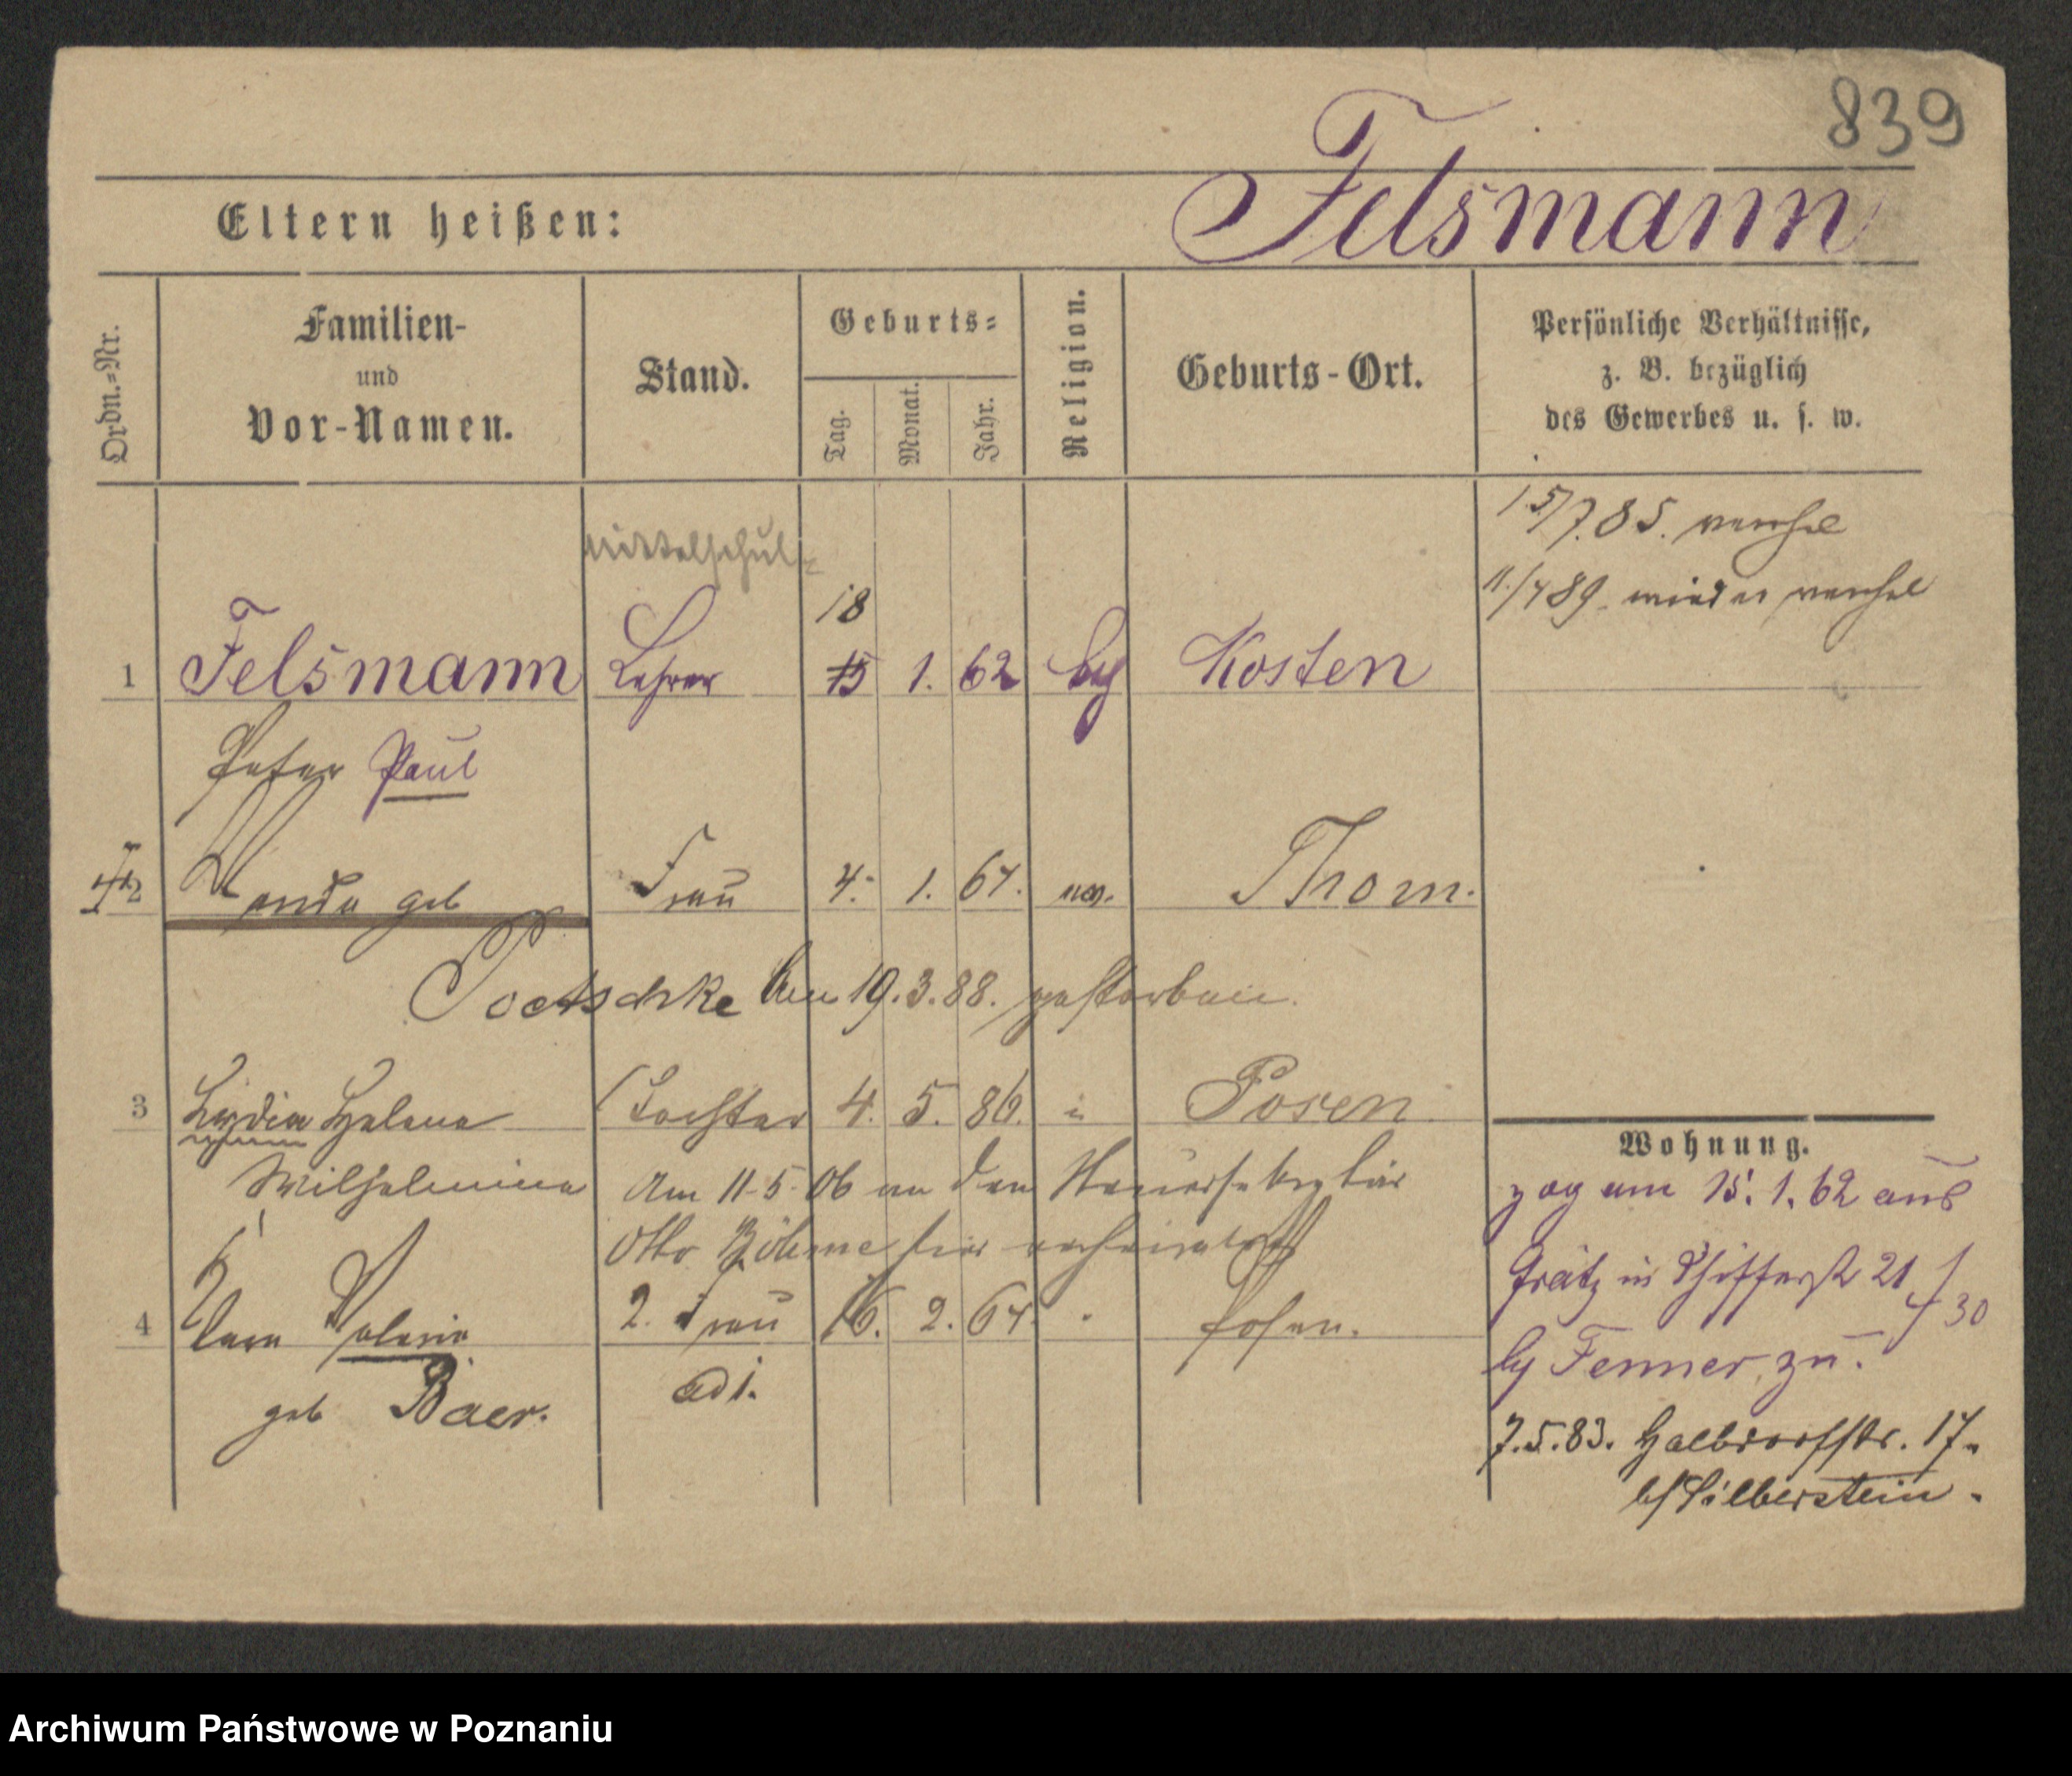 839
Eltern heißen: Felsmann
Ordn.=Nr. Familien- und Vor-Namen. Stand. Geburts= Tag. Monat. Jahr. Religion. Geburts-Ort. Persönliche Verhältnisse, z. B. bezüglich des Gewerbes u. s. w.
15/7.85. verehel
Mittelschul-
11./4 89. wieder verehel
18
1 Felsmann Lehrer 15 1. 62 Kosten
Peter Paul
2 Wanda geb Frau 4. 1. 64. Thorn.
Poetschke Am 19.3.88. gestorben.
3 Lydia Helene Tochter 4. 5. 86. Posen
Wilhelmine Am 11.5.06 an den
Otto Böhme hier verheiratet
4 Clara Valeria 2. Frau 16. 2. 64. Posen.
geb Baer.
Wohnung.
zog am 15. 1. 62 aus
Grätz in 21
30
Fenner zu.
7.5.83. Halbdorfstr. 17.
b/Silberstein.
Archiwum Państwowe w Poznaniu